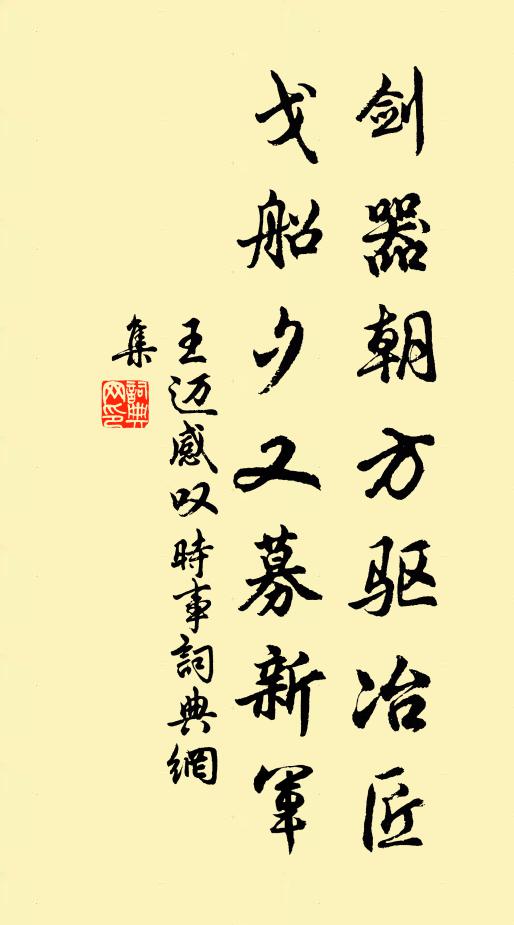 剑器朝方驱冶匠
戈船夕又募新军
王迈感叹时事詞典網
集
詞典网印